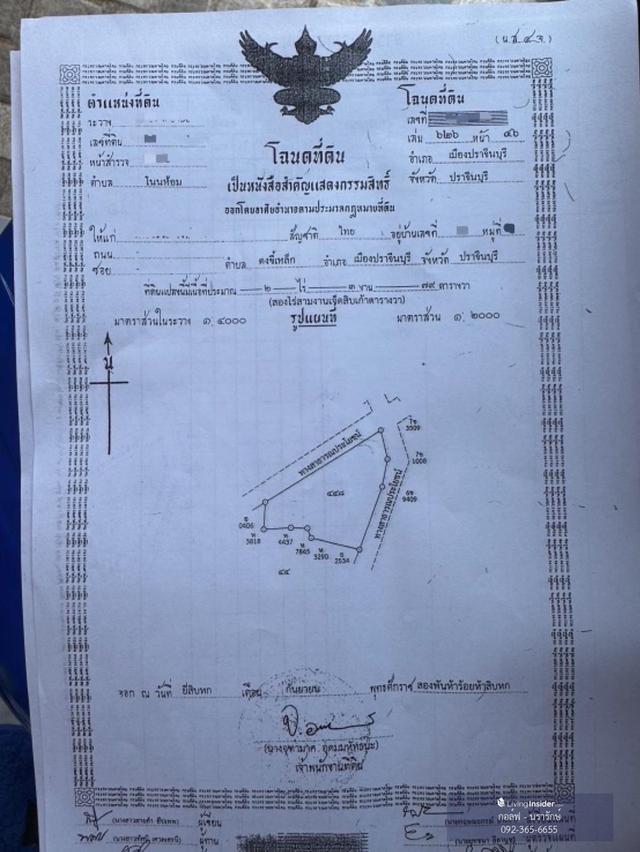 (น.ส.๔ จ.)
ตำแหน่งที่ดิน
ระวาง
เลขที่ดิน
หน้าสำรวจ
ตำบล โนนห้อม
โฉนดที่ดิน
เลขที่
เล่ม ๖๒๖ หน้า ๔๖
อำเภอ เมืองปราจีนบุรี
จังหวัด ปราจีนบุรี
โฉนดที่ดิน
เป็นหนังสือสำคัญแสดงกรรมสิทธิ์
ออกโดยอาศัยอำนาจตามประมวลกฎหมายที่ดิน
ให้แก่ สัญชาติ ไทย อยู่บ้านเลขที่ หมู่ที่
ถนน
ซอย ตำบล ดงขี้เหล็ก อำเภอ เมืองปราจีนบุรี จังหวัด ปราจีนบุรี
ที่ดินแปลงนี้มีเนื้อที่ประมาณ ๒ ไร่ ๓ งาน ๗๙ ตารางวา
(สองไร่สามงานเจ็ดสิบเก้าตารางวา)
มาตราส่วนในระวาง ๑:๔๐๐๐ รูปแผนที่ มาตราส่วน ๑:๒๐๐๐
น
ทางสาธารณประโยชน์
๔๔๘
ทางสาธารณประโยชน์
3509
1008
9409
0406
3818
4437
7845
5290
2534
๔๔
ออก ณ วันที่ ยี่สิบหก เดือน กันยายน พุทธศักราช สองพันห้าร้อยห้าสิบหก
เจ้าพนักงานที่ดิน
ผู้เขียน
ผู้ทาน
LivingInsider
กอล์ฟ - นรารักษ์
092-365-6655